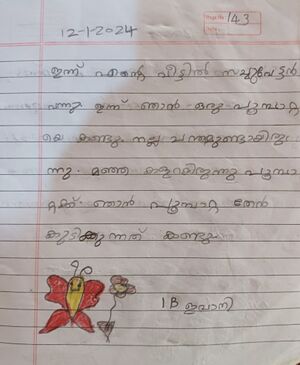 Page No. 143
Date
12-1-2024
ഇന്ന് എന്റെ വീട്ടിൽ സച്ചുവേട്ടൻ
വന്നു ഇന്ന് ഞാൻ ഒരു പൂമ്പാറ്റ
യെ കണ്ടു. നല്ല ചന്തമുണ്ടായിരു
ന്നു. മഞ്ഞ കളറായിരുന്നു പൂമ്പാ
റ്റക്ക് ഞാൻ പൂമ്പാറ്റ തേൻ
കുടിക്കുന്നത് കണ്ടു
1B ഇവാനി